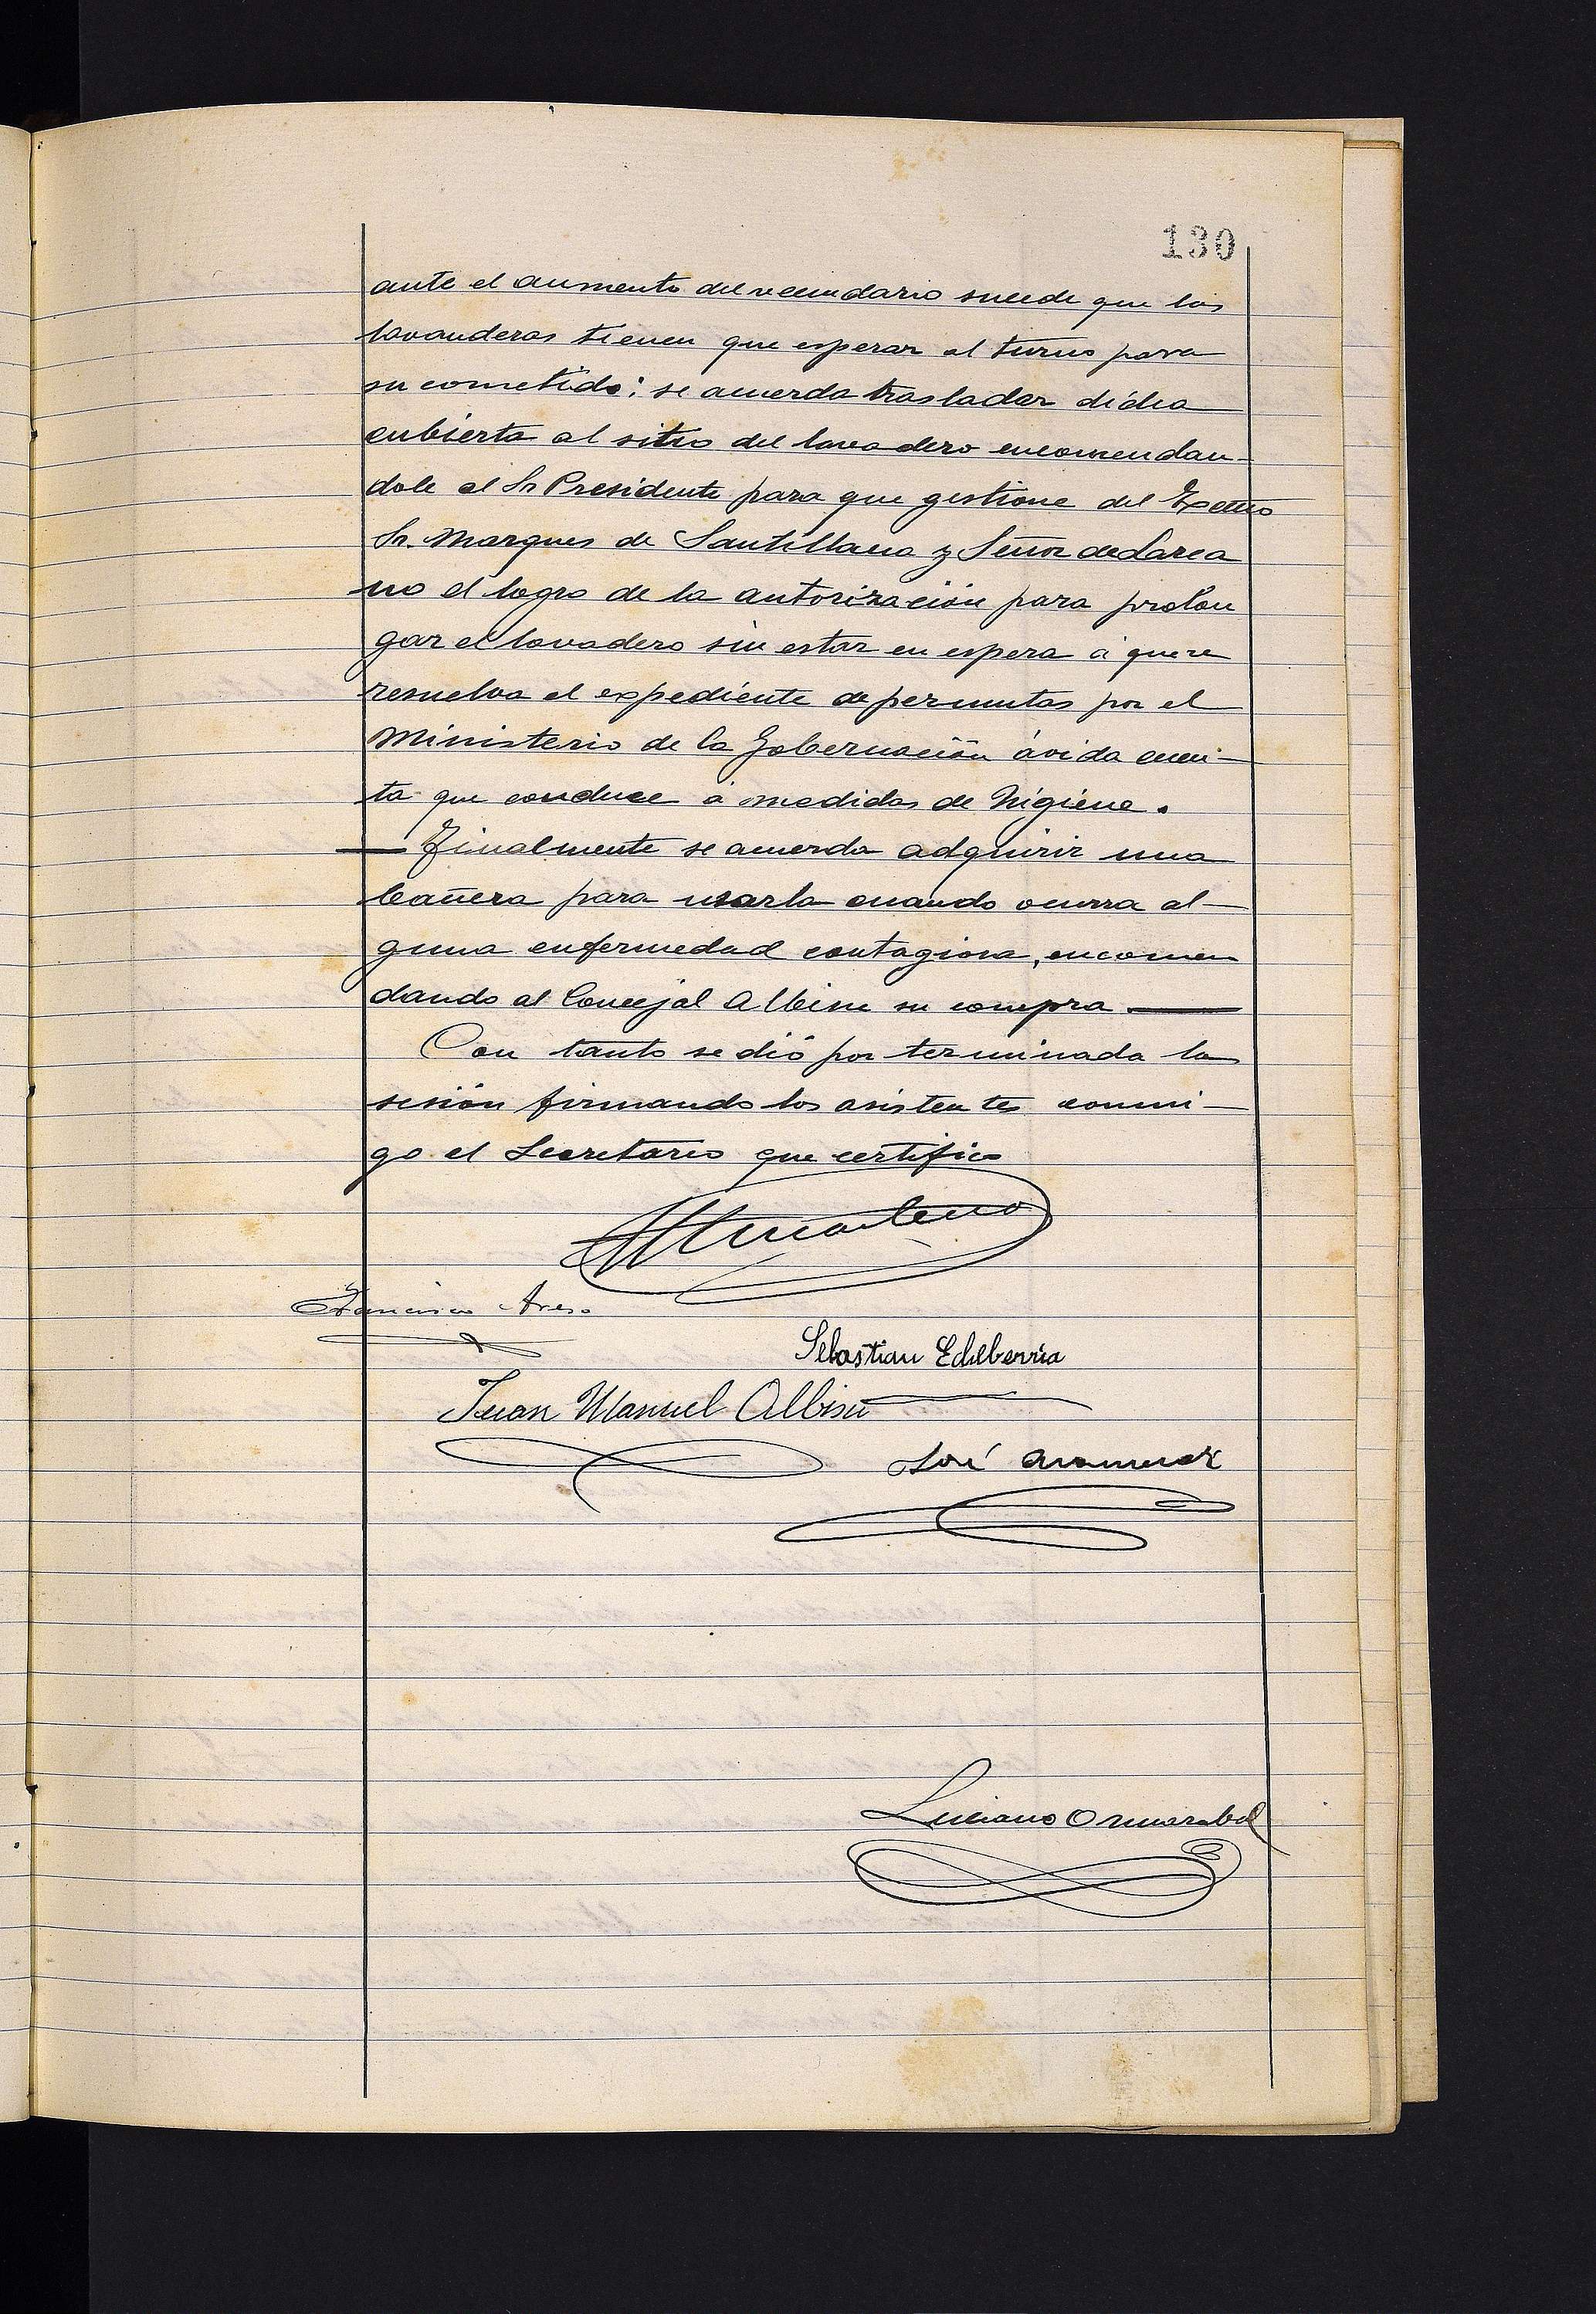 130
ante el aumento del vecindario sucede que las
lavanderas tienen que esperar al turno para
su cometido: se acuerda trasladar dicha
cubierta al sitio del lavadero encomendan-
dole al Sr Presidente para que gestione del Excmo
Sr. Marques de Santillana y Señor de Larea
no el logro de la autorización para prolon
gar el lavadero sin estar en espera á que se
resuelva el expediente de permutas por el
Ministerio de la Gobernación ávida cuen-
ta que conduce á medidas de higiene.
Finalmente se acuerda adquirir una
bañera para usarla cuando ocurra al-
guna enfermedad contagiosa, encomen
dando al Concejal Albisu su compra
Con tanto se dió por terminada la
sesión firmando los asistentes conmi-
go el Secretario que certifico
Francisco Areso
Sebastian Echeberria
Juan Manuel Albisu
José
Luciano Ormazabal